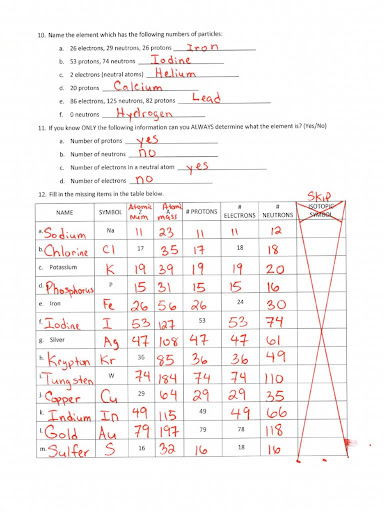 10. Name the element which has the following numbers of particles:
a. 26 electrons, 29 neutrons, 26 protons Iron
b. 53 protons, 74 neutrons Iodine
c. 2 electrons (neutral atoms) Helium
d. 20 protons Calcium
e. 86 electrons, 125 neutrons, 82 protons Lead
f. 0 neutrons Hydrogen
11. If you know ONLY the following information can you ALWAYS determine what the element is? (Yes/No)
a. Number of protons yes
b. Number of neutrons no
c. Number of electrons in a neutral atom yes
d. Number of electrons no
12. Fill in the missing items in the table below.
Skip
NAME SYMBOL Atomic Num Atomic mass # PROTONS # ELECTRONS # NEUTRONS ISOTOPIC SYMBOL
a. Sodium Na 11 23 11 11 12
b. Chlorine Cl 17 35 17 18 18
c. Potassium K 19 39 19 19 20
d. Phosphorus P 15 31 15 15 16
e. Iron Fe 26 56 26 24 30
f. Iodine I 53 127 53 53 74
g. Silver Ag 47 108 47 47 61
h. Krypton Kr 36 85 36 36 49
i. Tungsten W 74 184 74 74 110
j. Copper Cu 29 64 29 29 35
k. Indium In 49 115 49 49 66
l. Gold Au 79 197 79 78 118
m. Sulfer S 16 32 16 18 16